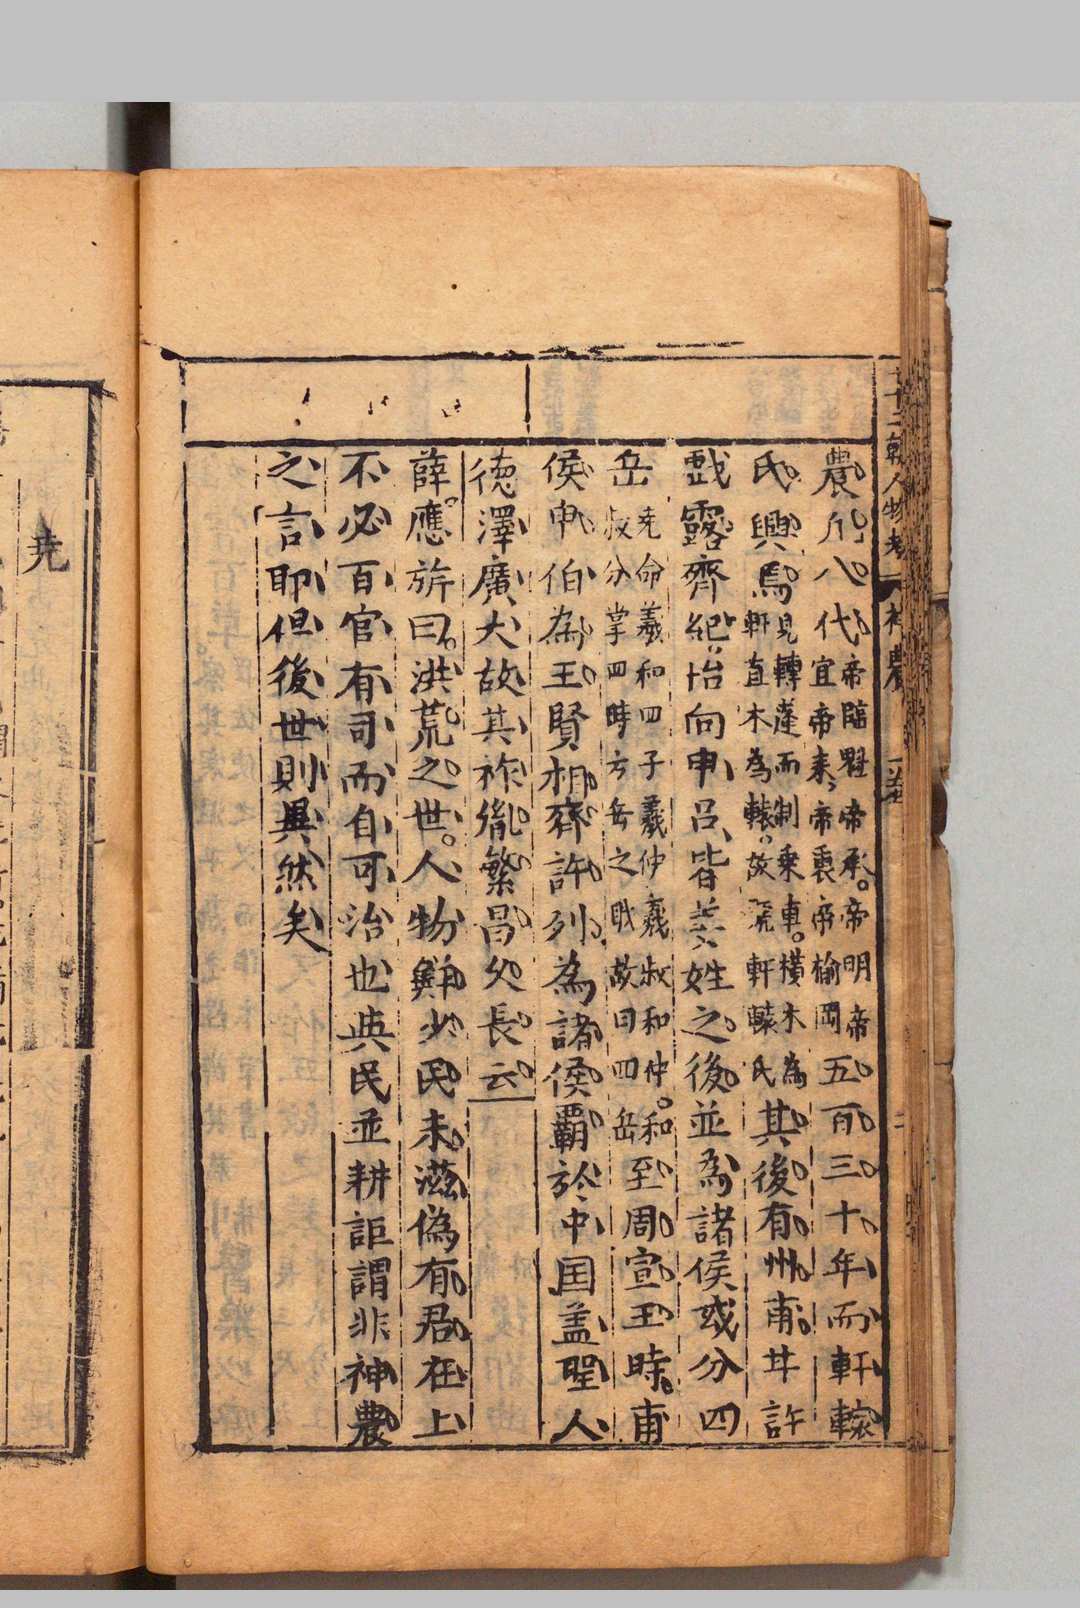 人物考 神農
農凡八代帝臨魁帝承。帝明帝
宜帝來帝裏帝榆岡五百三十年而軒轅
氏興焉見轉蓬而制乘車。橫木為
軒直木為轅。故號軒轅氏其後有州甫井許
戲露齊紀。怡向申呂皆姜姓之後並為諸侯或分四
岳堯命羲和四子羲仲羲叔和仲。和
叔分掌四時方岳之職故曰四岳至周宣王時。甫
侯申伯為王賢相齊許列為諸侯覇於中囯盖聖人
德澤廣大故其祚胤繁昌久長云
薛應旂曰。洪荒之世。人物鮮少民未滋偽有君在上
不必百官有司而自可治也與民並耕詎謂非神農
之言耶但後世則異然矣
堯